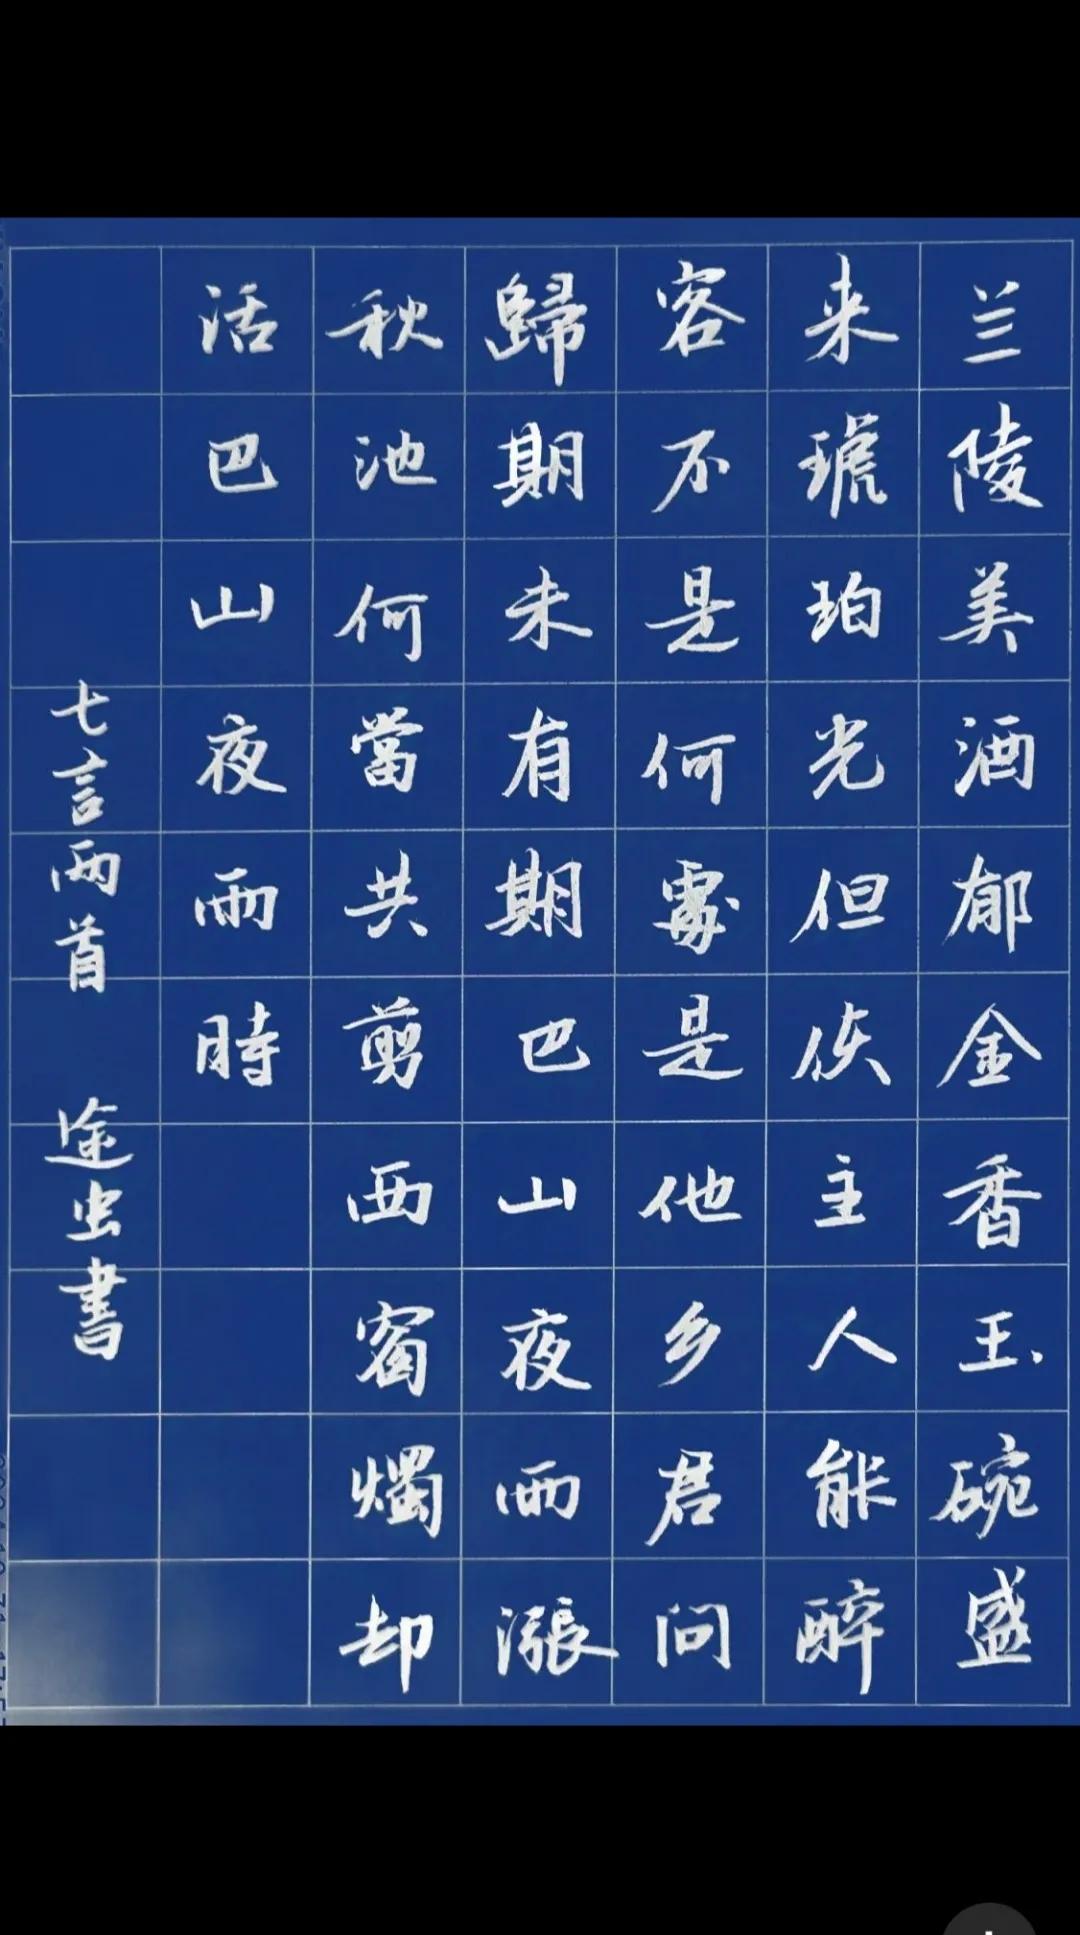 兰陵美酒郁金香玉碗盛
来琥珀光但使主人能醉
客不是何處是他乡君问
歸期未有期巴山夜雨漲
秋池何當共剪西窗燭却
活巴山夜雨時
七言两首 途虫書